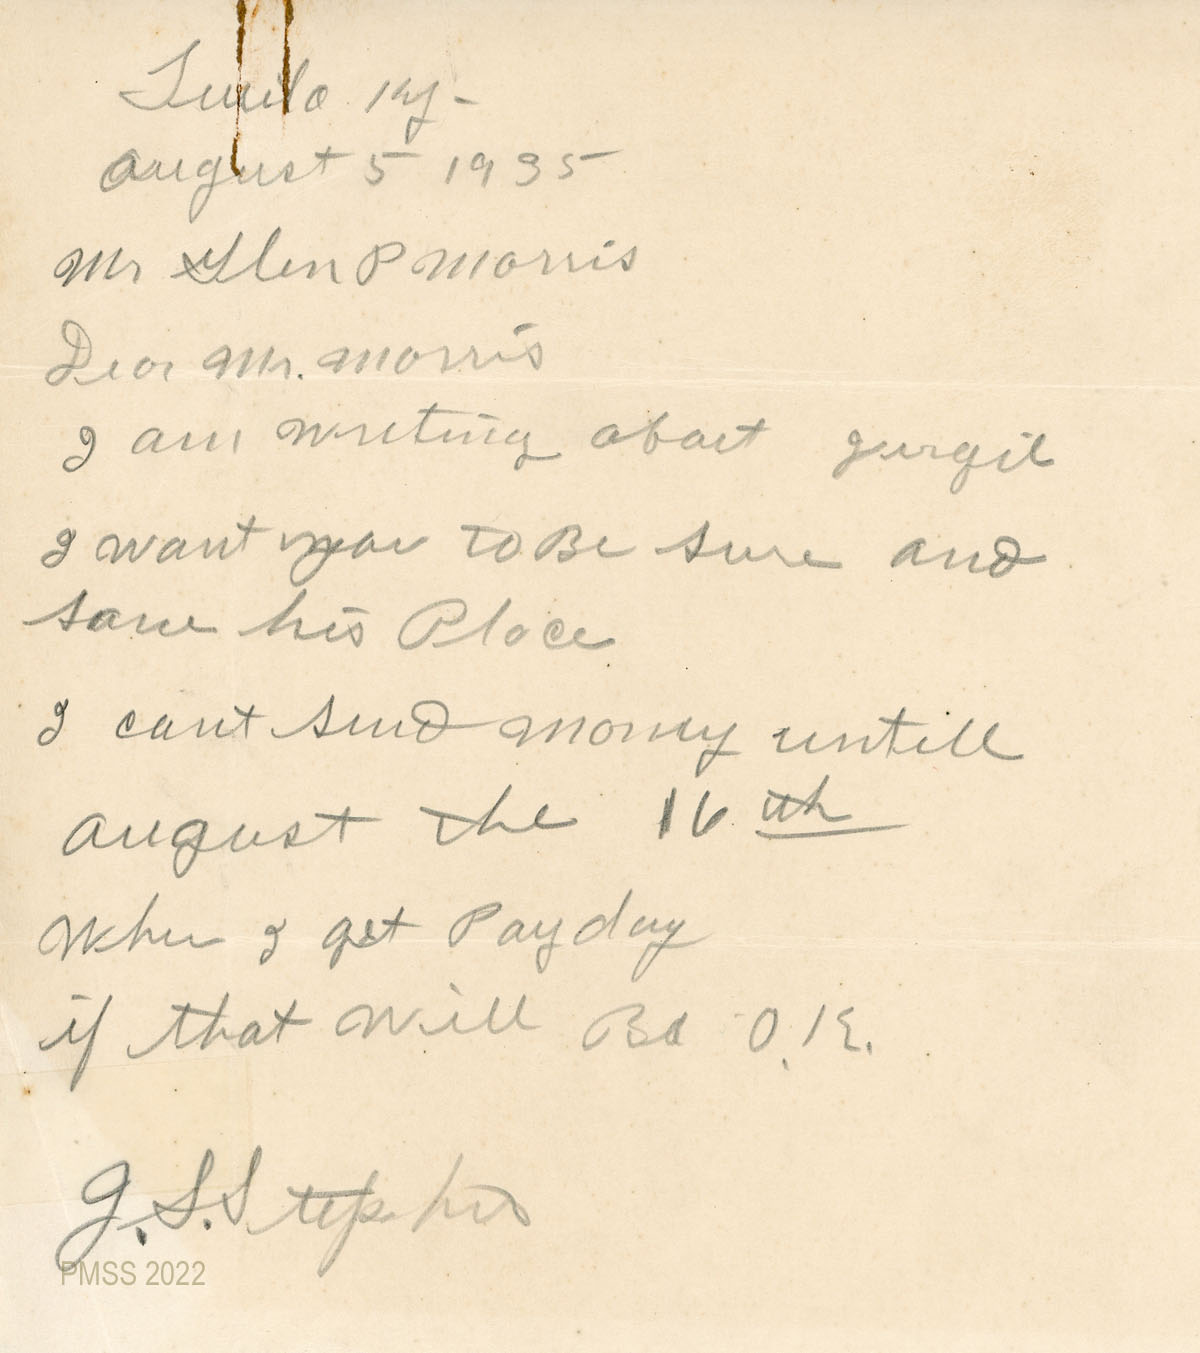 Twila Ky-
August 5 1935
Mr Glen P Morris
Dear Mr. Morris
I am writing about
I want you to Be sure and
save his Place
I cant send money untill
august the 16 th
When I get Pay day
if that will Be O.K.
J.S. Stephens
PMSS 2022